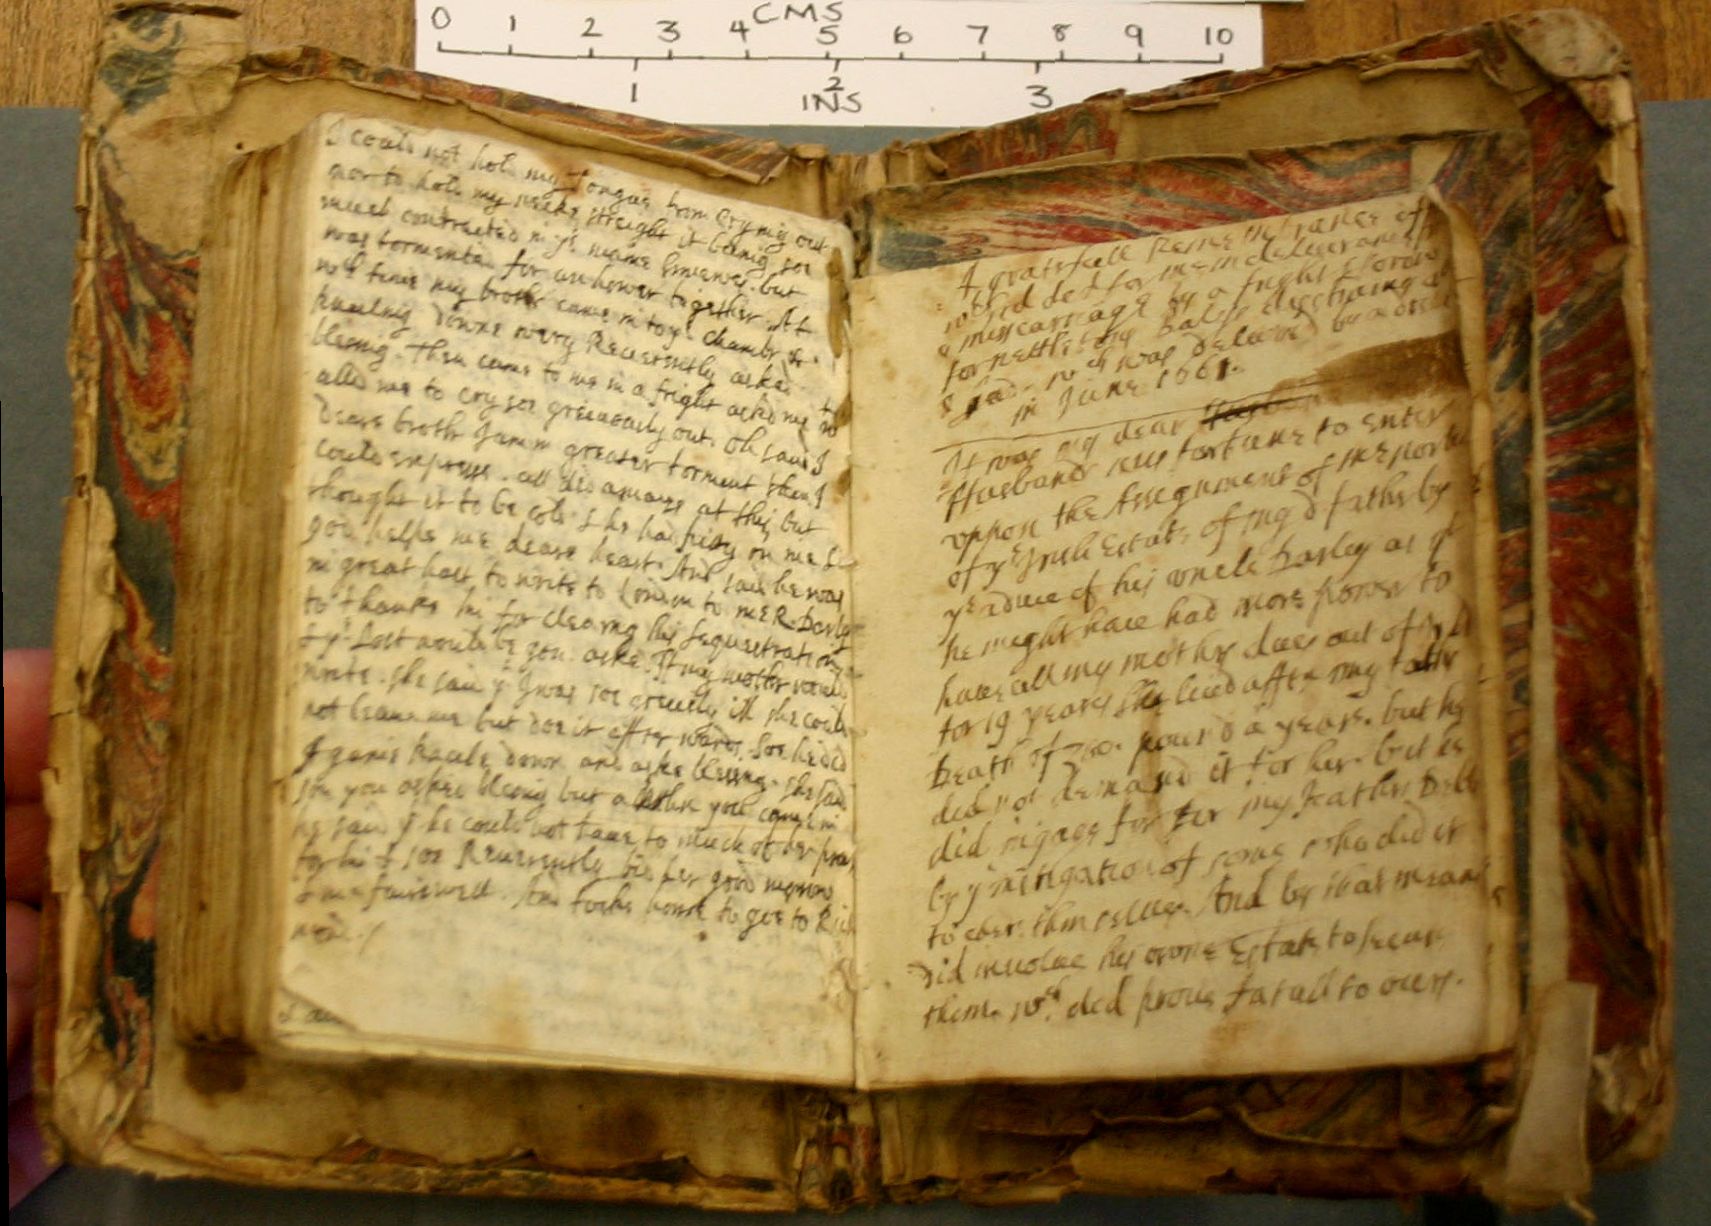 0 1 2 3 4 5 6 7 8 9 10
CMS
1 2 3
INS
I could not hold my tongue from crying out
nor to hold my necke streight it being soe
much contracted my veine sinewes. but
was tormented for an hower together. At
wch time my brothr came in to ye chambr &
kneeling downe very Reverently asked
blessing. Then came to me in a fright asked me
alld me to cry soe greivously out. Oh said I
Deare brothr I am in greater torment then I
could expresse. all was amaze at this, but
thought it to be cold & he had pitty on me &
god helpe me deare heart. And said he was
in great hast to write to London to mr R. Darly
to thanke him for clearing his sequestration
& yt Post would be gon. asked If my mothr would
write. she said yt I was soe greevously ill she could
not leave me but doe it afterwards. Soe he did
againe kneele down and aske blessing. she said
son you asked blessing but a when you came in
he said yt he could not have to much of her prayers
for him & soe Reverently bid her good morrow
& me fairewell. Soe tooke horse to goe to Rich
mond.
A gratefull Remembrance of
wt God ded for me in deliverance fr
a miscarriage by a fright & sorow
for nettleton's Baliffs destraining
& wch was delivered
in June 1661.
It was my dear
Husbands misfortune to enter
uppon the Assignment of the
of ye Irish Estate of my d fathr by
ye advice of his uncle Darley as yt
he might have had more power to
have all my mothrs dues out of it
for 19 years she lived after my fathr
Death of pound a yeare. but he
did not demand it for her. but he
did ingage for my Father Debts
by ye instigation of some who did it
to themselves. And by that meanes
did involve his owne Estate to secure
them. wch did prove fatall to ours.